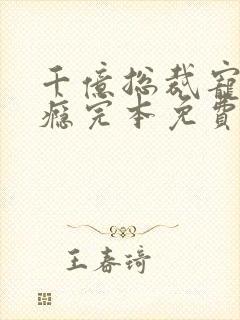 千億總裁寵
癮完本免費
王春琦